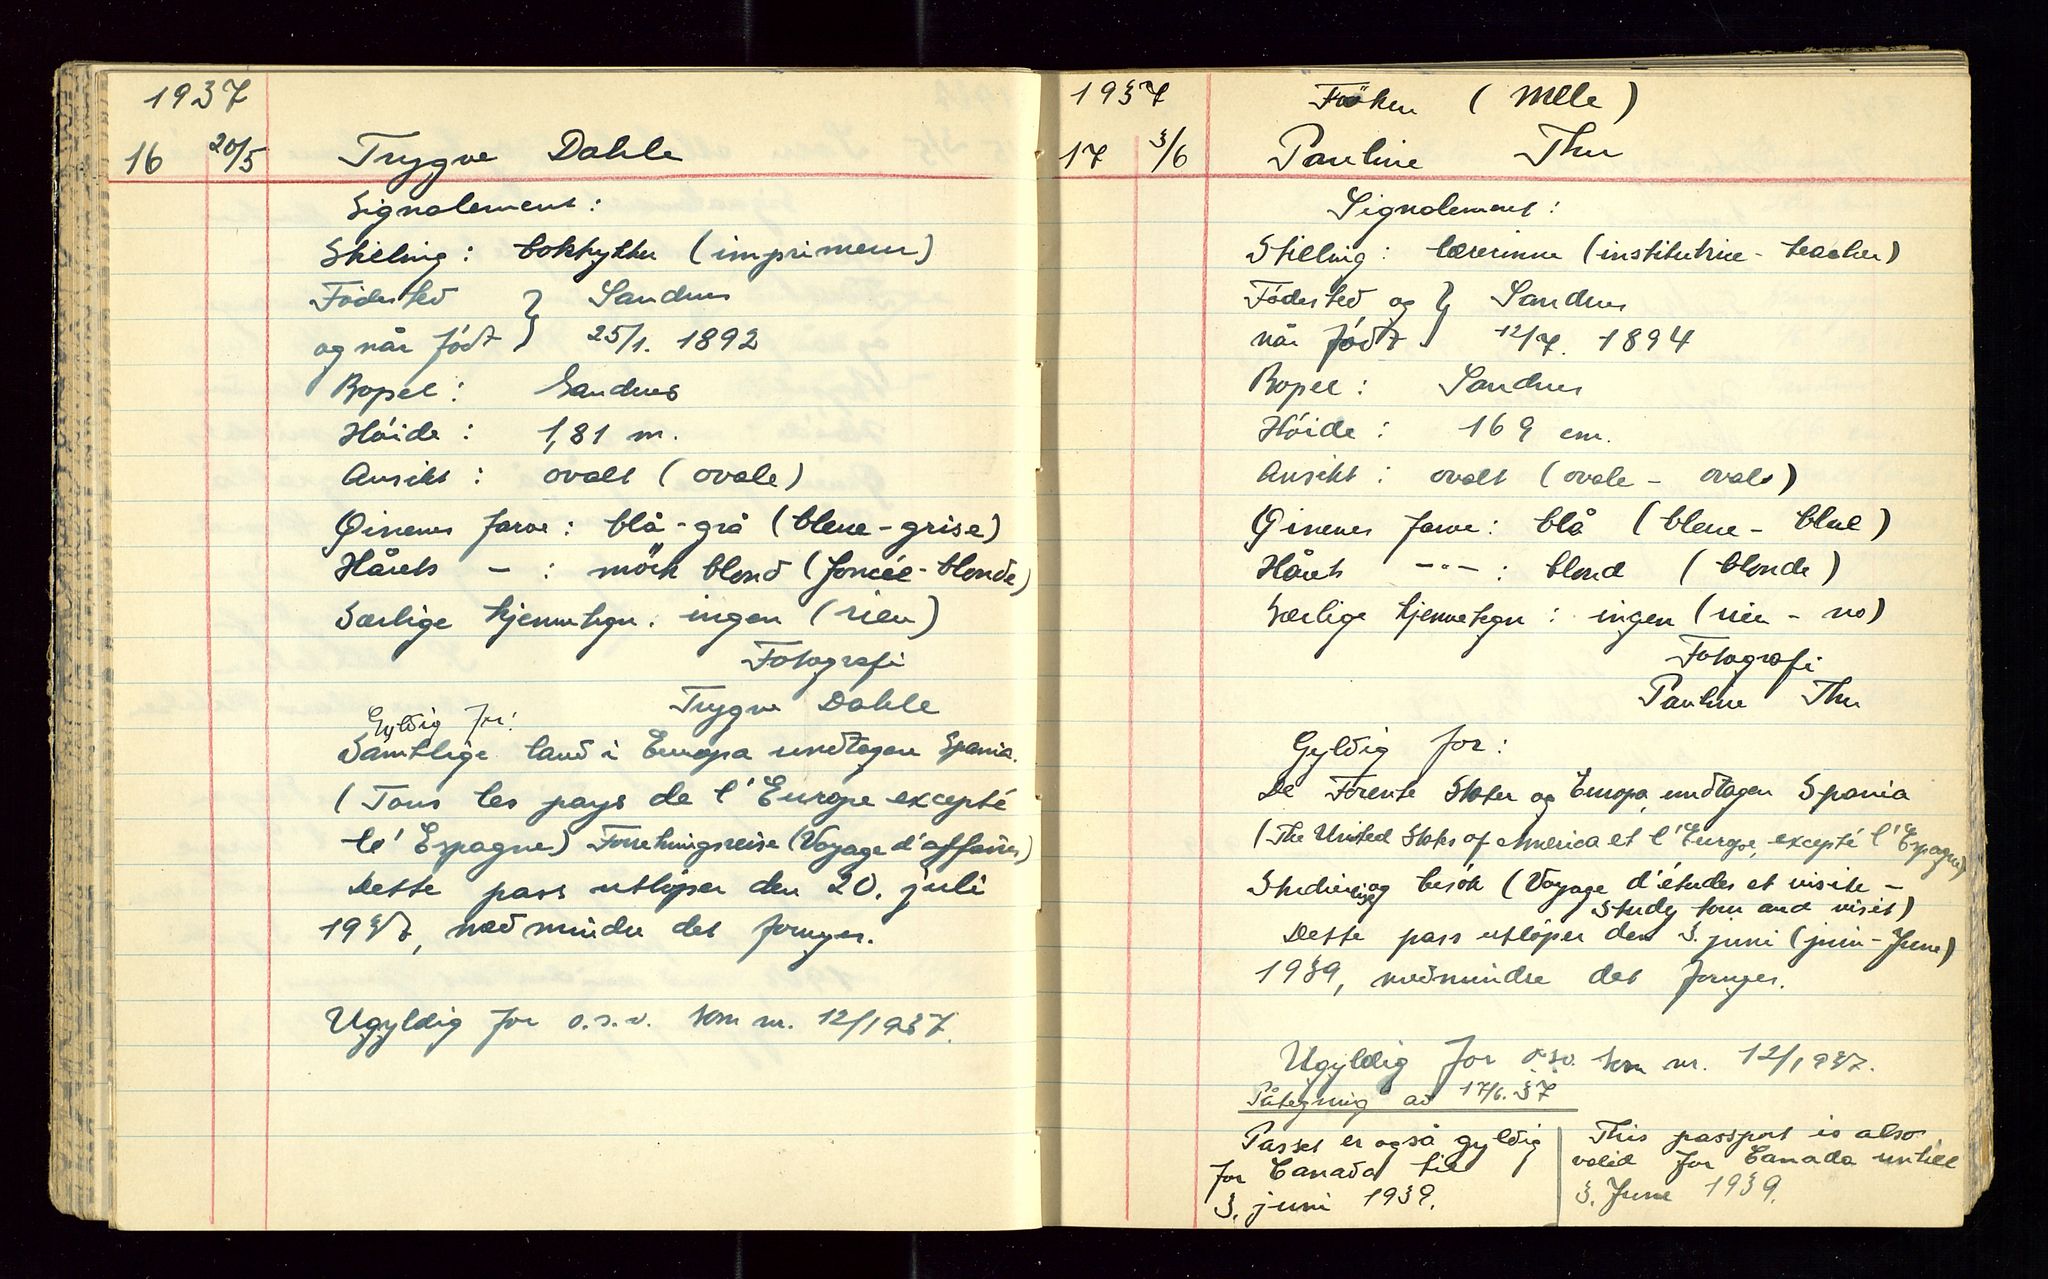 1937
16 20/5 Trygve Dahle
Signalement:
Stilling: boktrykker (imprimeur)
Fødested } Sandnes
og når født } 25/1. 1892
Bopel: Sandnes
Høide: 1,81 m.
Ansikt: ovalt (ovale)
Øinenes farve: blå-grå (bleue-grise)
Hårets — : mörk blond (foncée-blonde)
Særlige kjennetegn: ingen (rien)
Fotografi
Trygve Dahle
Gyldig for:
Samtlige land i Europa undtagen Spania.
(Tous les pays de l'Europe excepté
le' Espagne) Forretningsreise (Voyage d'affaires)
Dette pass utløper den 20. juli
1937, medmindre det fornyes.
Ugyldig for o.s.v. som nr. 12/1937.
1937 Fröken (Mlle)
17 3/6 Pauline Thu
Signalement:
Stilling: lærerinne (institutrice - teacher)
Fødested og } Sandnes
når født } 12/7. 1894
Bopel: Sandnes
Høide: 169 cm.
Ansikt: ovalt (ovale - oval)
Øinenes farve: blå (bleue - blue)
Hårets -"- : blond (blonde)
Særlige kjennetegn: ingen (rien - no)
Fotografi
Pauline Thu
Gyldig for:
De Forente Stater og Europa, undtagen Spania
(The United States of America et l'Europe, excepté l'Espagne)
Studiereise og besøk (Voyage d'études et visite -
Study tour and visit)
Dette pass utløper den 3. juni (juin - June)
1939, medmindre det fornyes.
Ugyldig for o.s.v. som nr. 12/1937.
Påtegning av 17/6. 37
Passet er også gyldig
for Canada til
3. juni 1939.
This passport is also
valid for Canada untill
3. June 1939.